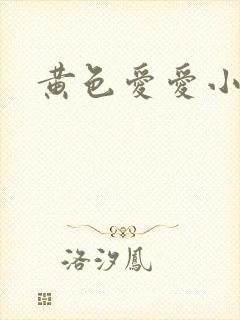 黄色爱爱小
洛汐凤